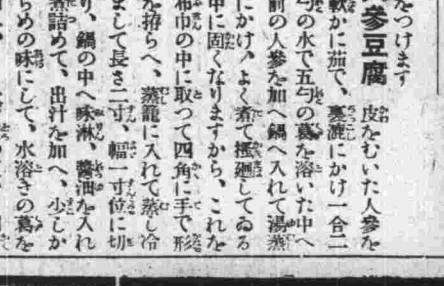 をつけます
參豆腐 皮をむいた人參を
軟かに茹で、裏漉にかけ一合二
勺の水で五勺の葛を溶いた中へ
前の人參を加へ鍋へ入れて湯蒸
にかけ、よく煮て搔廻してゐる
中に固くなりますから、これを
布巾の中に取つて四角に手で形
を拵らへ、蒸籠に入れて蒸し冷
まして長さ二寸、幅一寸位に切
り、鍋の中へ味淋、醬油を入れ
煮詰めて、出汁を加へ、少しか
らめの味にして、水溶きの葛を